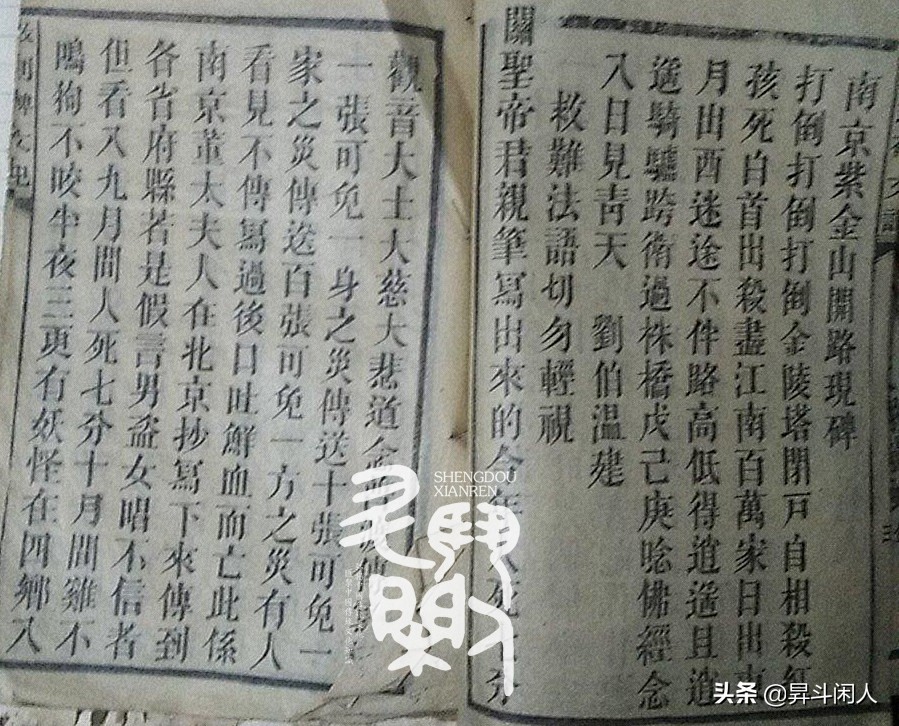 南京紫金山開路現碑
打倒打倒打倒金陵塔閉戶自相殺紅
孩死白首出殺盡江南百萬家日出東
月出西迷途不件路高低得逍遥且逍
遥騎驢跨衛過株橋戊己庚唸佛經念
入日見青天　劉伯温建
救難法語切勿輕視
關聖帝君親筆寫出來的今年人死
觀音大士大慈大悲道
一張可免一身之災傳送十張可免一
家之災傳送百張可免一方之災有人
看見不傳寫過後口吐鮮血而亡此係
南京董太夫人在北京抄寫下來傳到
各省府縣若是假言男盗女唱不信者
但看入九月間人死七分十月間雞不
鳴狗不咬半夜三更有妖怪在四鄉入
SHENGDOU
XIANREN
头条 @昇斗闲人